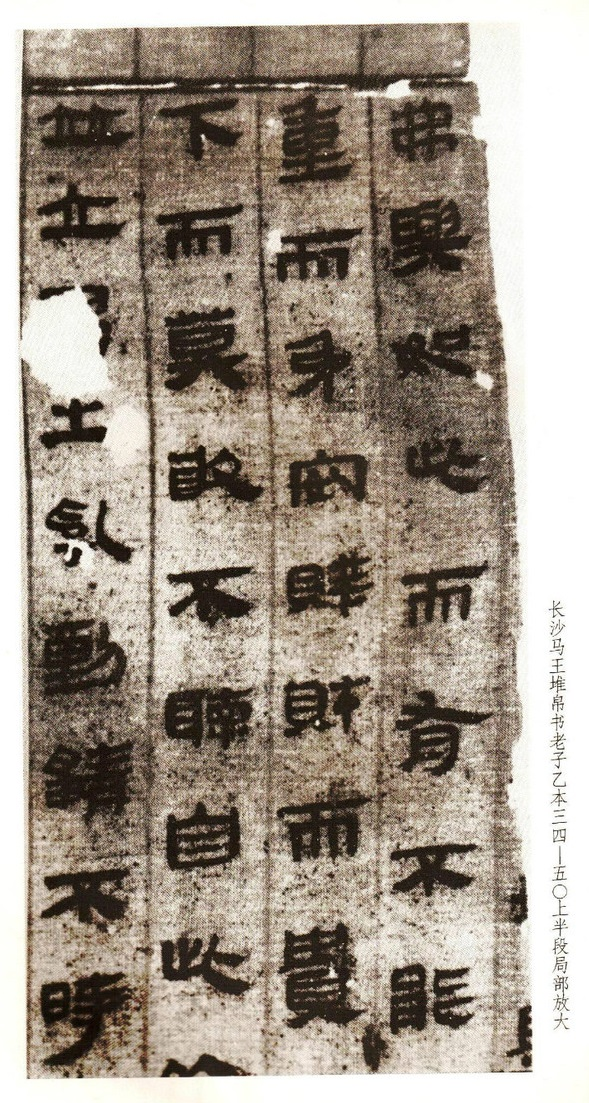 弗與如此而有不能
重而身安賤財而貴
下而莫敢不聽自此
並立胃之亂動靜不時
长沙马王堆帛书老子乙本三四—五〇上半段局部放大